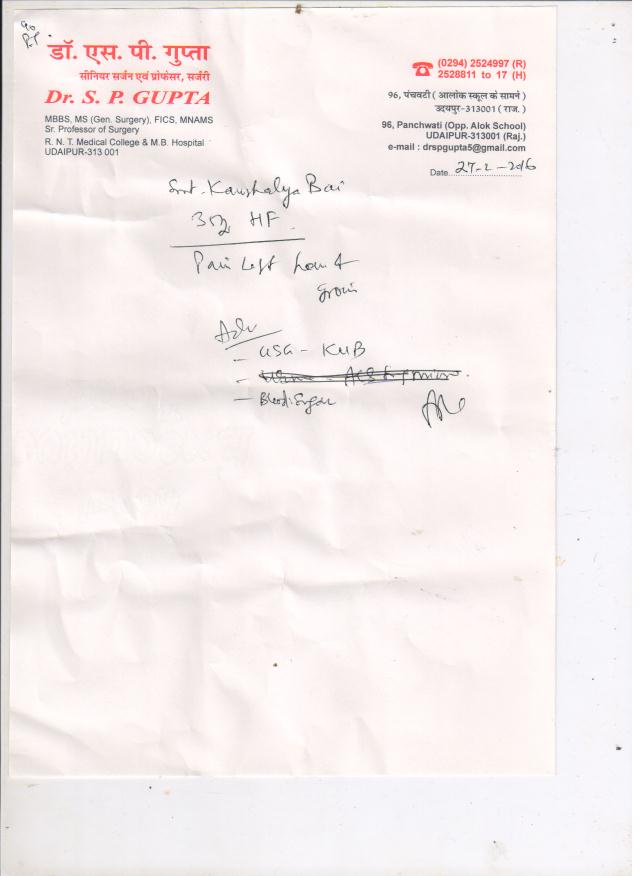 डॉ. एस. पी. गुप्ता
सीनियर सर्जन एवं प्रोफेसर, सर्जरी
Dr. S. P. GUPTA
MBBS, MS (Gen. Surgery), FICS, MNAMS
Sr. Professor of Surgery
R. N. T. Medical College & M.B. Hospital
UDAIPUR-313 001
(0294) 2524997 (R)
2528811 to 17 (H)
96, पंचवटी ( आलोक स्कूल के सामने )
उदयपुर-313001 ( राज. )
96, Panchwati (Opp. Alok School)
UDAIPUR-313001 (Raj.)
e-mail : drspgupta5@gmail.com
Date 27-2-2016
Smt. Kaushalya Bai
HF
Pain Left
groin
Adv
- USG - KUB
- Blood Sugar